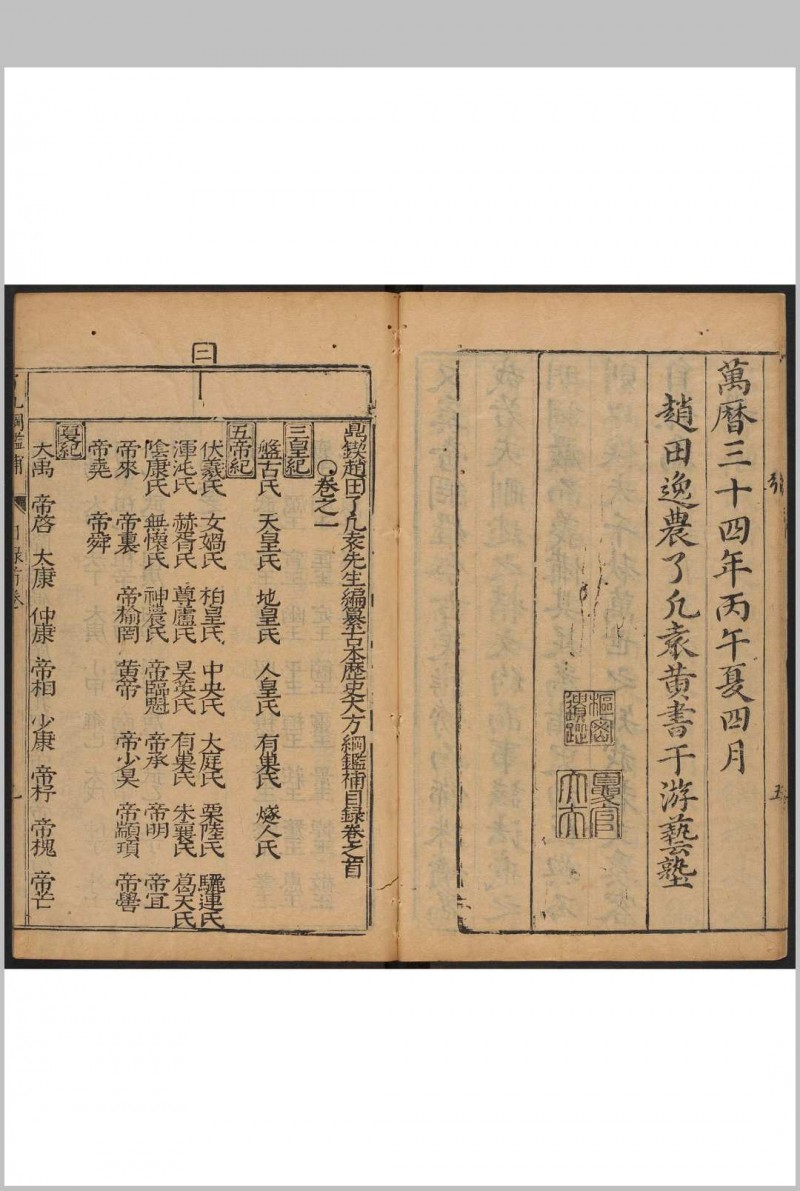 萬曆三十四年丙午夏四月
趙田逸農了凡袁黃書于游藝塾
樞密
遺蹤
夏官
大夫
五
二
鼎鍥趙田了凡袁先生編纂古本歷史大方綱鑑補目録卷之首
○卷之一
三皇紀
盤古氏 天皇氏 地皇氏 人皇氏 有巢氏 燧人氏
五帝紀
伏羲氏 女媧氏 柏皇氏 中央氏 大庭氏 栗陸氏 驪連氏
渾沌氏 赫胥氏 尊盧氏 昊英氏 有巢氏 朱襄氏 葛天氏
陰康氏 無懷氏 神農氏 帝臨魁 帝承 帝明 帝宜
帝來 帝裏 帝榆罔 黃帝 帝少昊 帝顓頊 帝嚳
帝堯 帝舜
夏紀
大禹 帝啓 太康 仲康 帝相 少康 帝杼 帝槐 帝芒
了凡綱鑑補 目録首卷 一